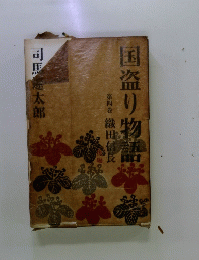 国盗り物語
第四巻 織田信長
司馬遼太郎